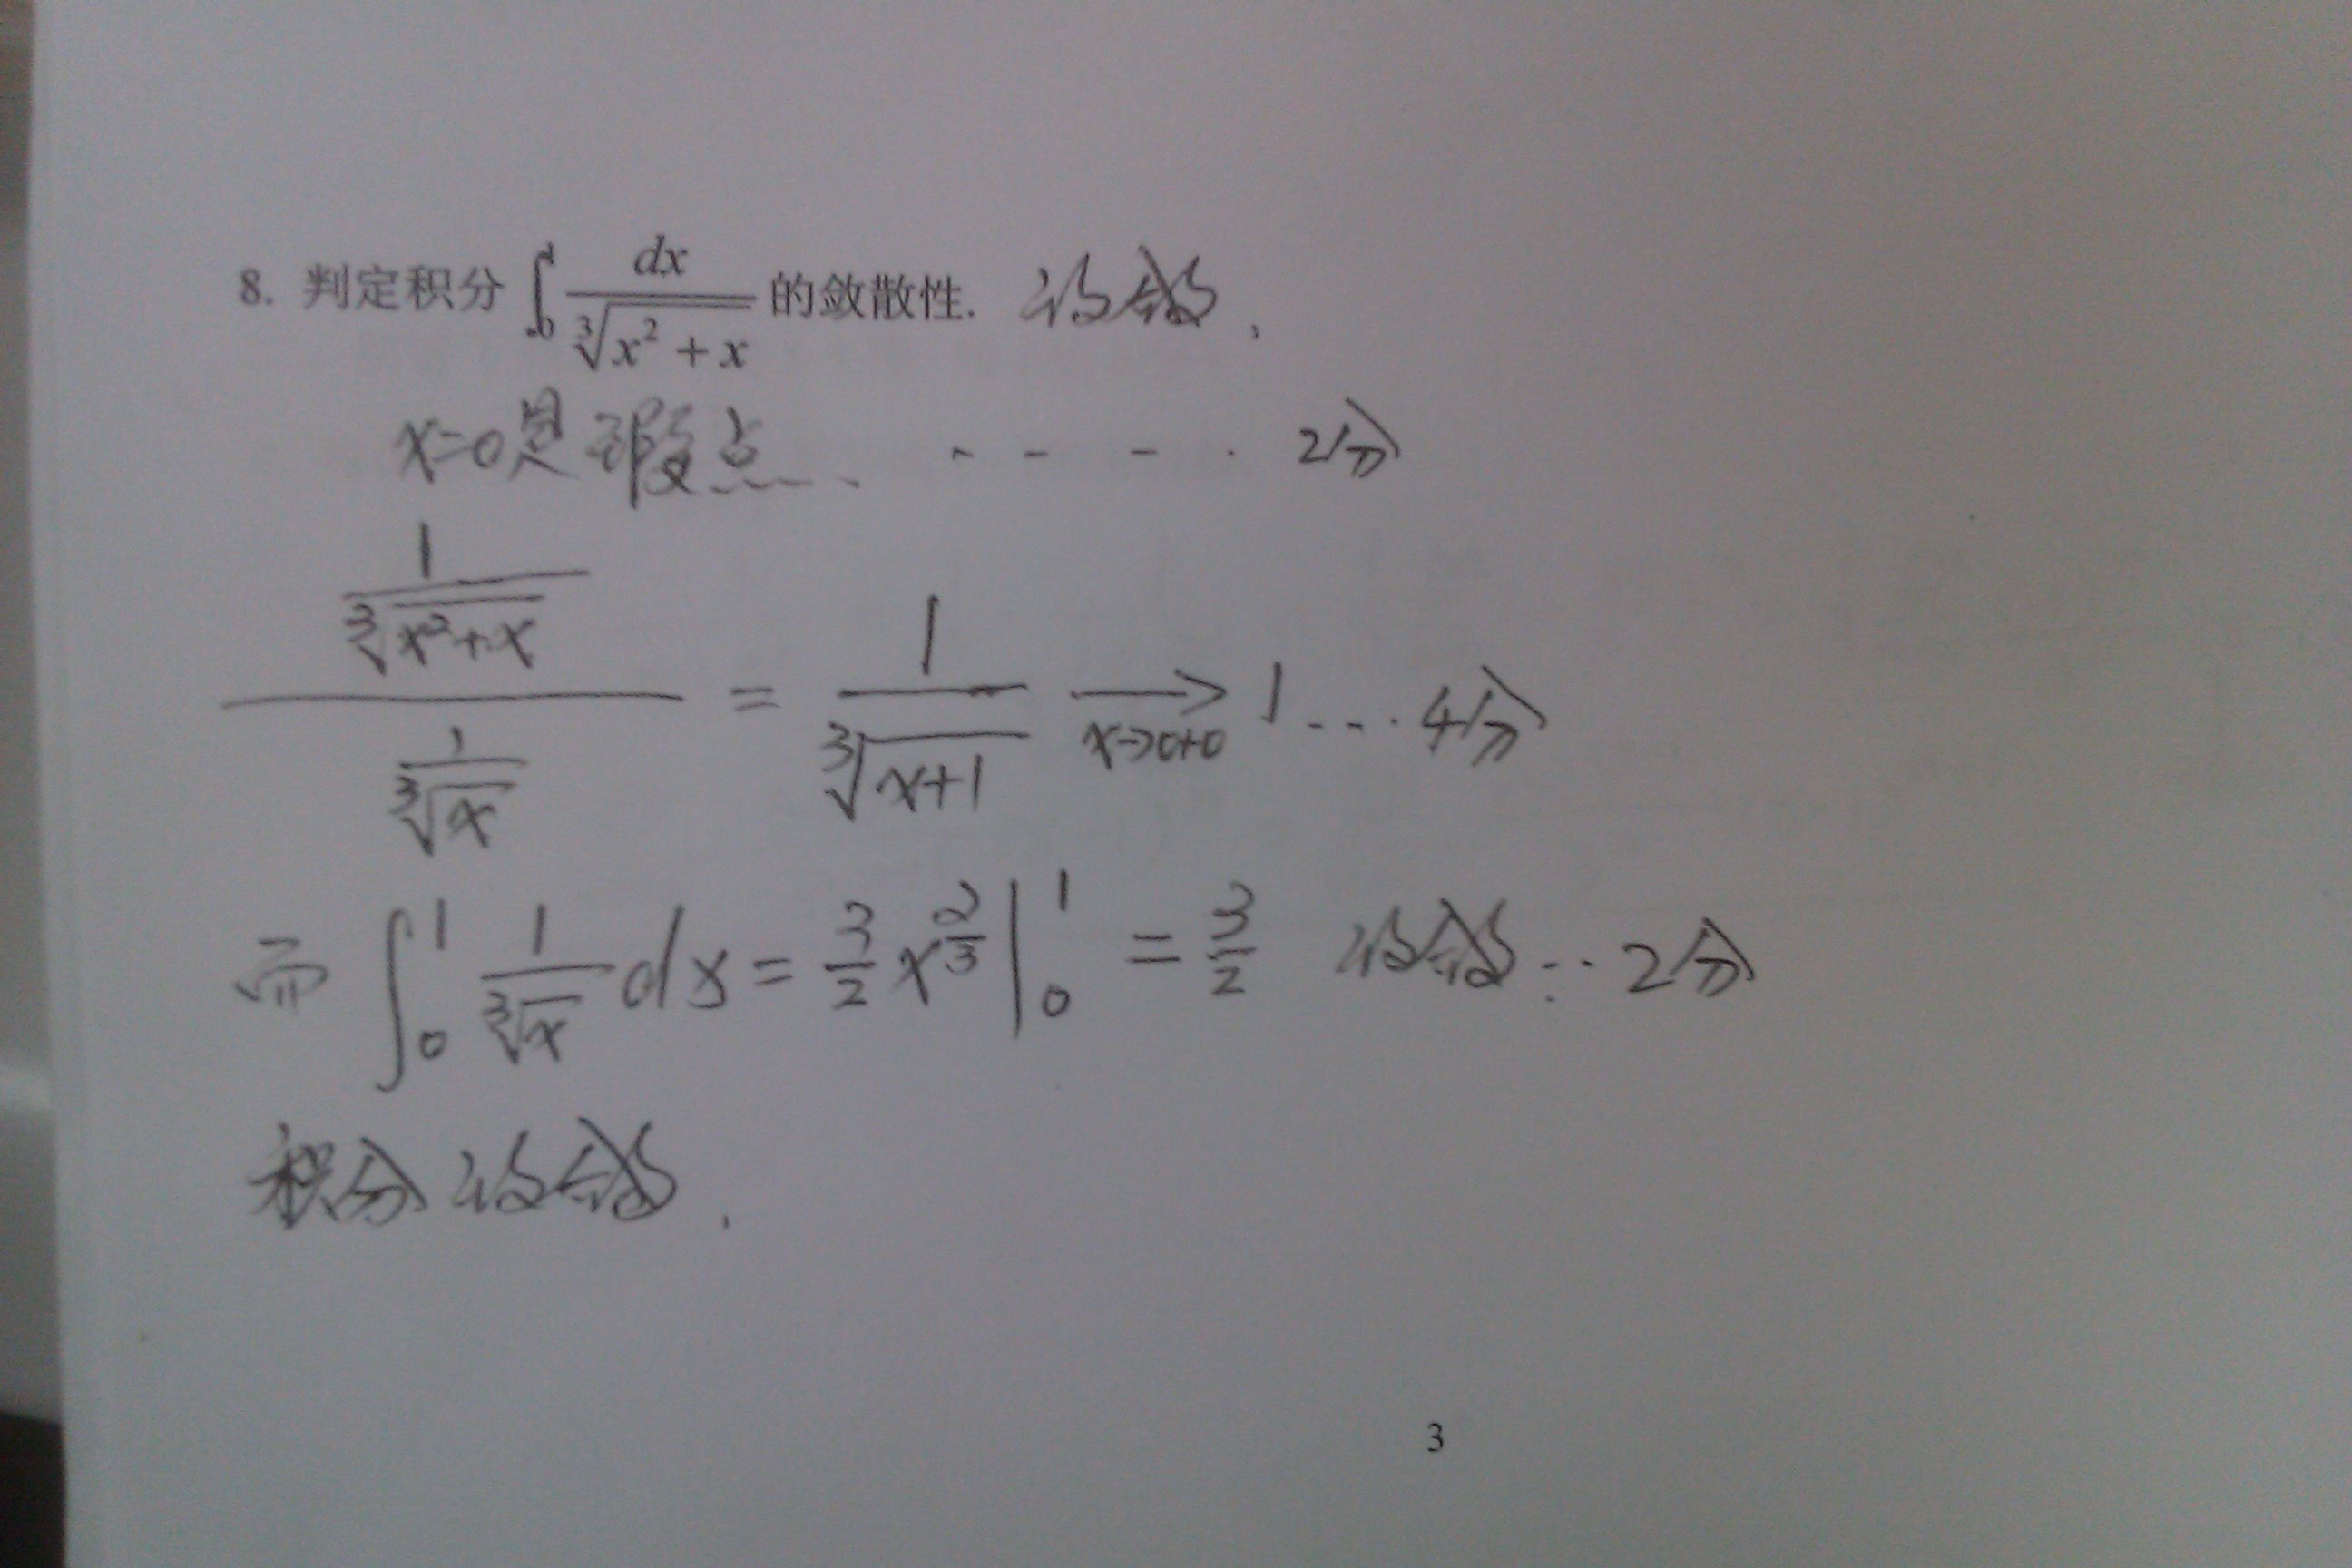 8. 判定积分 ∫₀¹ dx/∛(x²+x) 的敛散性. 收敛.
x=0是瑕点 ---- 2分
(1/∛(x²+x))/(1/∛x) = 1/∛(x+1) →(x→0+0) 1 --- 4分
而 ∫₀¹ 1/∛x dx = 3/2 x^(2/3) |₀¹ = 3/2 收敛 -- 2分
积分收敛.
3